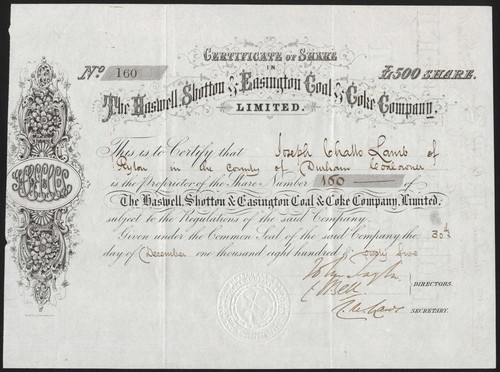 CERTIFICATE OF SHARE
IN
No. 160
£500 SHARE.
The Haswell, Shotton & Easington Coal & Coke Company,
LIMITED.
This is to Certify that Joseph Chatto Lamb of
Ryton in the County of Durham Coalowner
is the Proprietor of the Share Number 160 of
The Haswell, Shotton & Easington Coal & Coke Company, Limited.
subject to the Regulations of the said Company.
Given under the Common Seal of the said Company the 30th
day of December one thousand eight hundred &
DIRECTORS.
Bell
SECRETARY.